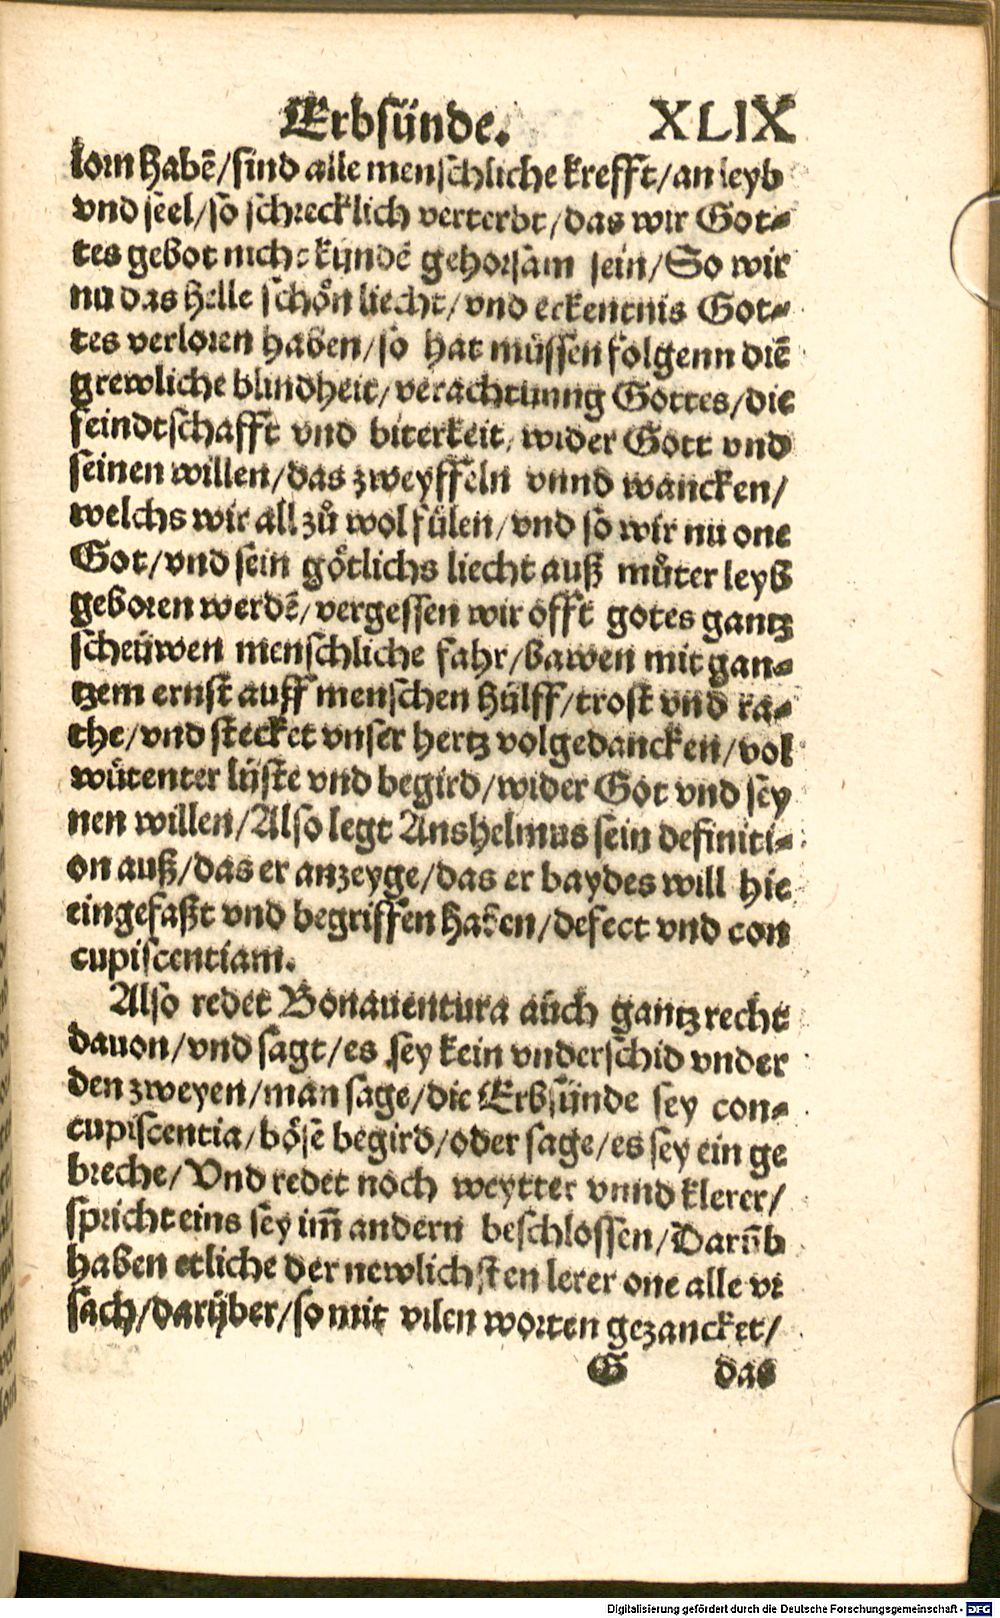 Erbsünde. XLIX
lorn habē/sind alle menschliche krefft/an leyb
vnd seel/so schrecklich verterbt/das wir Got-
tes gebot nicht kündē gehorsam sein/So wir
nu das helle schön liecht/vnd erkentnis Got-
tes verloren haben/so hat müssen folgenn diē
grewliche blindheit/verachtunng Gottes/die
feindtschafft vnd biterkeit/wider Gott vnd
seinen willen/das zweyffeln vnnd wancken/
welchs wir all zů wol fülen/vnd so wir nu one
Got/vnd sein götlichs liecht auß můter leyb
geboren werdē/vergessen wir offt gotes gantz
scheüwen menschliche fahr/bawen mit gan-
tzem ernst auff menschen hülff/trost vnd ra-
the/vnd stecket vnser hertz vol gedancken/vol
wütenter lüste vnd begird/wider Got vnd sey
nen willen/Also legt Anshelmus sein definiti-
on auß/das er anzeyge/das er baydes will hie
eingefaßt vnd begriffen haben/defect vnd con
cupiscentiam.
Also redet Bonauentura aüch gantz recht
dauon/vnd sagt/es sey kein vnderschid vnder
den zweyen/man sage/die Erbsünde sey con-
cupiscentia/böse begird/oder sage/es sey ein ge
breche/Vnd redet noch weytter vnnd klerer/
spricht eins sey im̄ andern beschlossen/Darūb
haben etliche der newlichsten lerer one alle vr
sach/darüber/so mit vilen worten gezancket/
G das
Digitalisierung gefördert durch die Deutsche Forschungsgemeinschaft - DFG